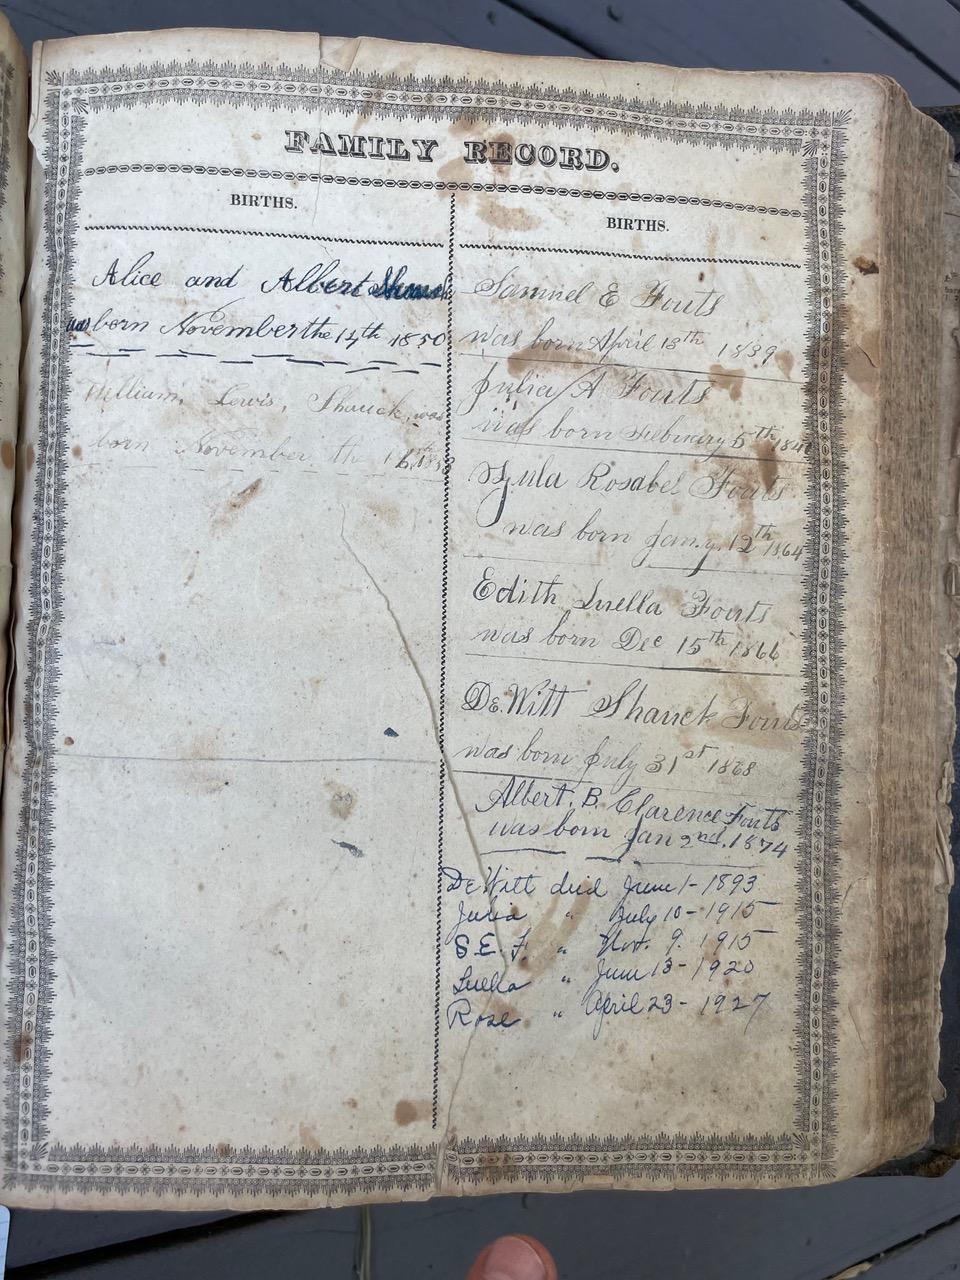 FAMILY RECORD.
BIRTHS.
Alice and Albert Shauck
was born November the 14th 1850
William, Lewis, Shauck, was
born November th 16th
BIRTHS.
Samuel E Fouts
was born April 13th 1839
Julia A Fouts
was born February 5th
Zula Rosabel Fouts
was born Jan.y. 12th 1864
Edith Luella Fouts
was born Dec 15th 1866
De.Witt Shauck Fouts
was born July 31st 1868
Albert. B. Clarence Fouts
was born Jan 2nd. 1874
DeWitt died June 1 - 1893
Julia " July 10 - 1915
S.E. F. " Nov. 9. 1915
Luella " June 13 - 1920
Rose " April 23 - 1927